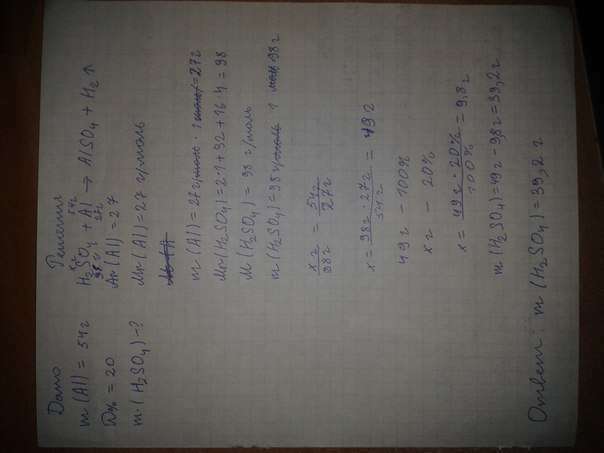 Дано
m(Al) = 54г
W% = 20
m(H2SO4) -?
Решения
xг 54г
H2SO4 + Al → AlSO4 + H2↑
98г 27г
Ar(Al) = 27
Mr(Al) = 27 г/моль
m(Al) = 27г/моль · 1 моль = 27г
Mr(H2SO4) = 2·1 + 32 + 16·4 = 98
M(H2SO4) = 98 г/моль
m(H2SO4) = 98г/моль · 1 моль 98г
xг / 98г = 54г / 27г
x = 98г · 27г / 54г = 49г
49г - 100%
xг - 20%
x = 49г · 20% / 100% = 9,8г
m(H2SO4) = 49г - 9,8г = 39,2г
Ответ: m(H2SO4) = 39,2 г